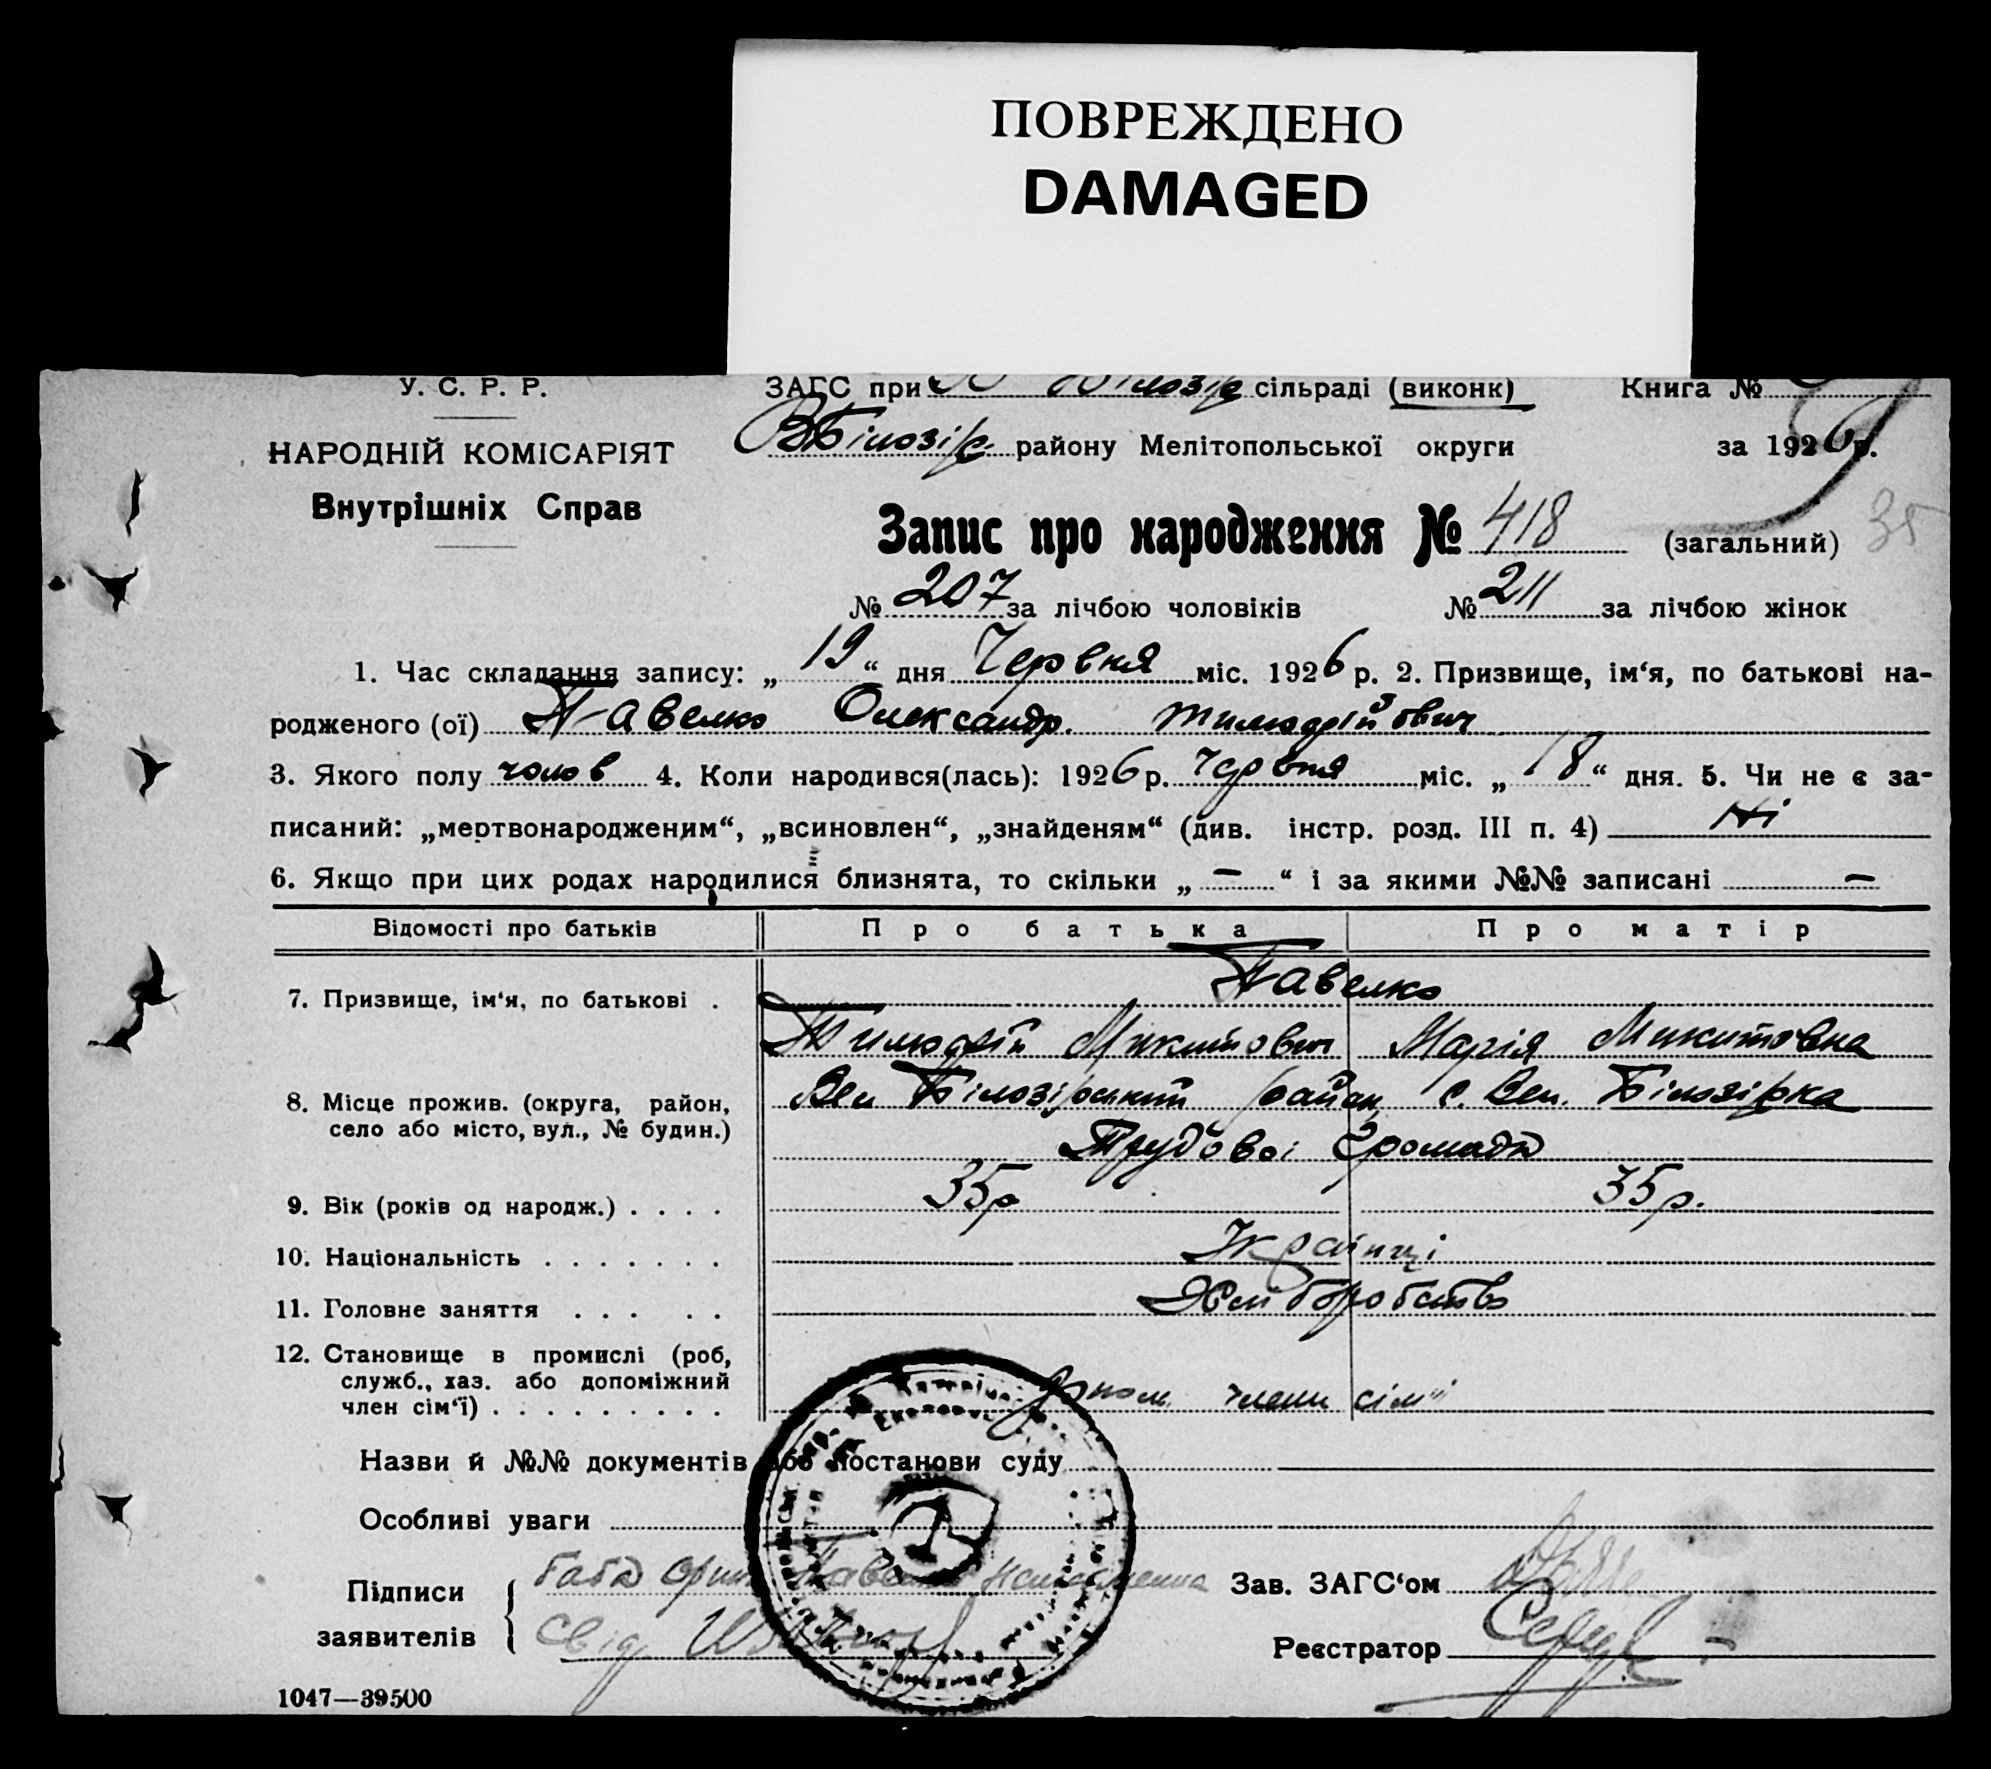 ПОВРЕЖДЕНО
DAMAGED
У. С. Р. Р.
ЗАГС при Білозір сільраді (виконк) Книга №
НАРОДНІЙ КОМІСАРІЯТ
ВБілозір. району Мелітопольської округи за 1926 р.
Внутрішніх Справ
Запис про народження № 418 (загальний) 35
№ 207 за лічбою чоловіків № 211 за лічбою жінок
1. Час складання запису: „ 19 “ дня Червня міс. 1926 р. 2. Призвище, ім‘я, по батькові на-
родженого (ої) Павелко Олександр.
3. Якого полу чолов 4. Коли народився(лась): 1926 р. Червня міс. „ 18 “ дня. 5. Чи не є за-
писаний: „мертвонародженим“, „всиновлен“, „знайденям“ (див. інстр. розд. III п. 4) Ні
6. Якщо при цих родах народилися близнята, то скільки „ – “ і за якими №№ записані –
Відомості про батьків Про батька Про матір
Павелко
7. Призвище, ім‘я, по батькові .
Микитович Марія Микитовна
8. Місце прожив. (округа, район, Вел Білозірський район, с. Вел. Білозірка
село або місто, вул., № будин.)
Трудової Громади
9. Вік (років од народж.) . . . . 35р 35р.
10. Національність . . . . . . . Українці
11. Головне заняття . . . . . Хліборобство
12. Становище в промислі (роб,
служб., хаз. або допоміжний
член сім‘ї) . . . . . . . . . члени сім'ї
Назви й №№ документів або постанови суду
Особливі уваги
Підписи баба Павелко
заявителів Свід.
Зав. ЗАГС‘ом
Реєстратор
1047—39500